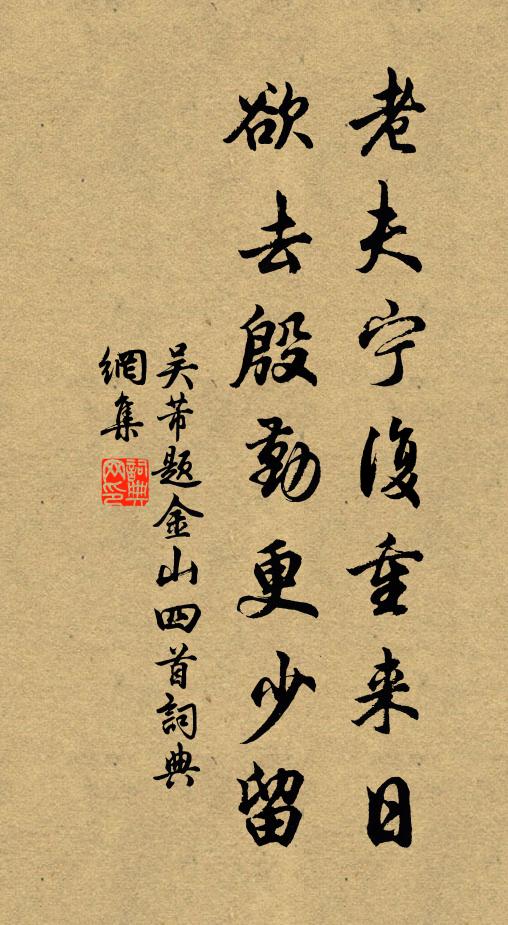 老夫宁復重来日
欲去殷勤更少留
吴芾题金山四首詞典
網集
詞典
网印